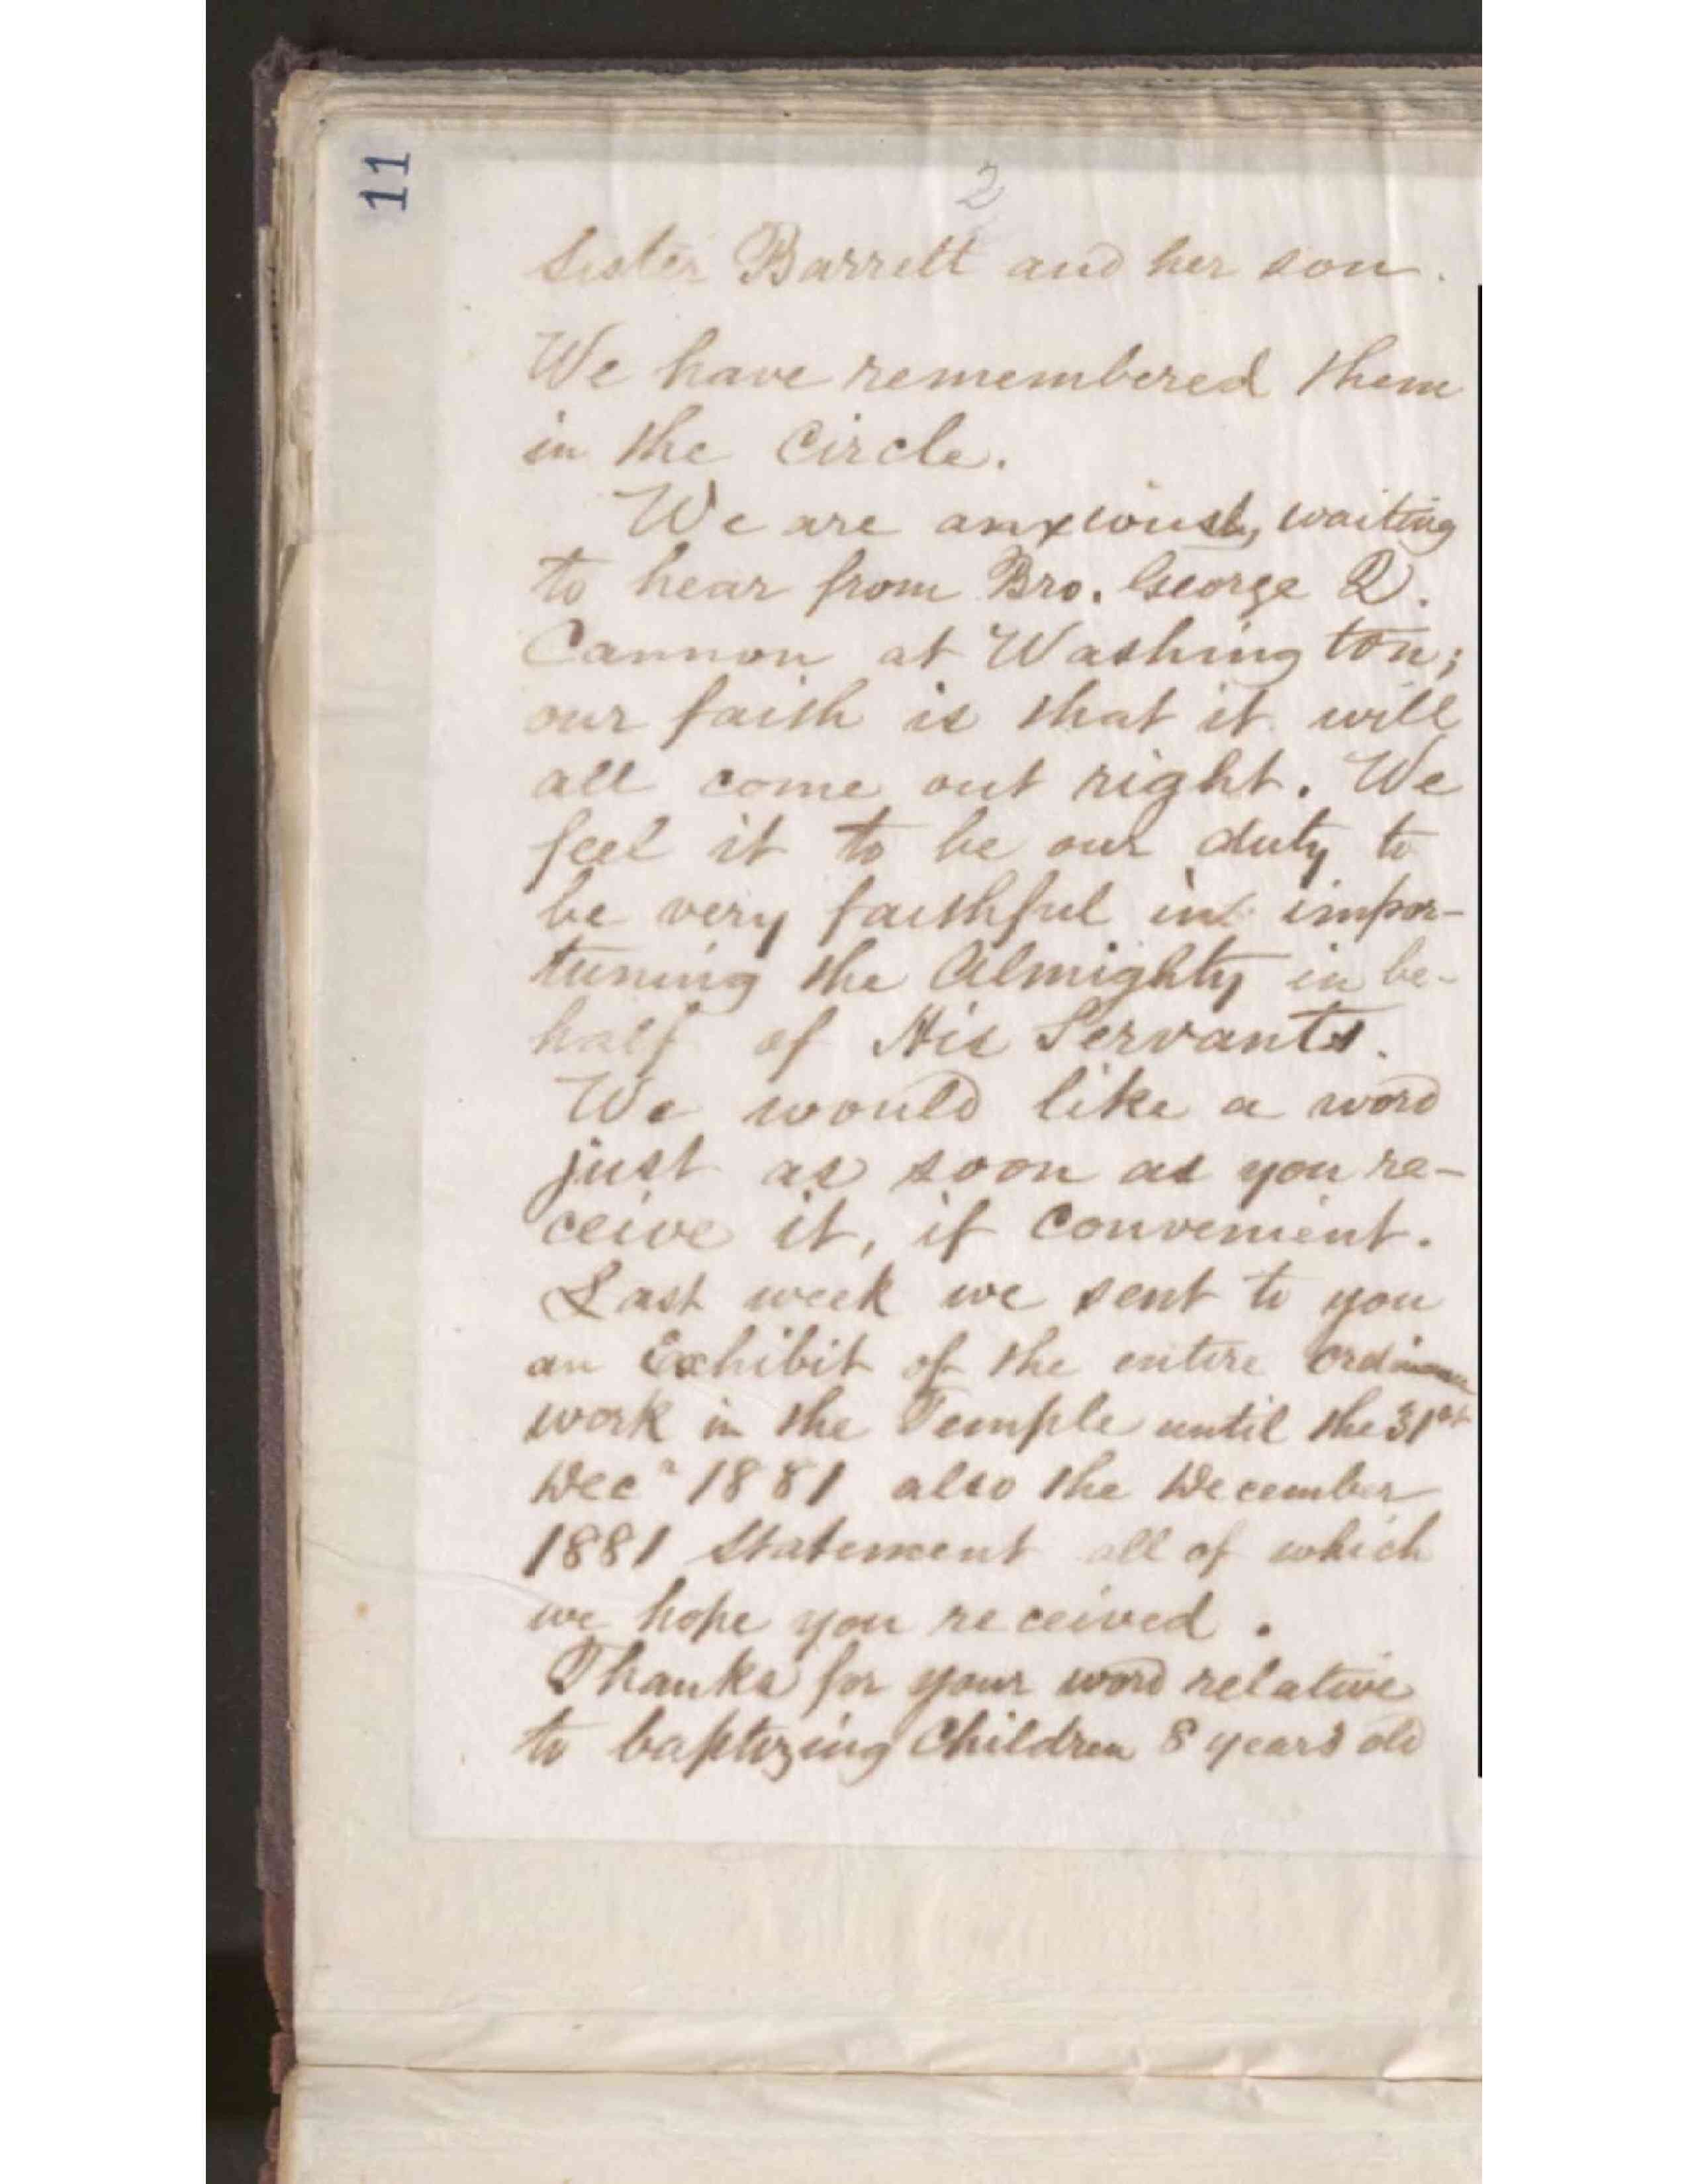 11
2
Sister Barrett and her son.
We have remembered them
in the Circle.
We are anxiously waiting
to hear from Bro. George Q.
Cannon at Washington;
our faith is that it will
all come out right. We
feel it to be our duty to
be very faithful in impor-
tuning the Almighty in be-
half of His Servants.
We would like a word
just as soon as you re-
ceive it, if convenient.
Last week we sent to you
an Exhibit of the entire
work in the Temple until the 31st
Decr 1881 also the December
1881 Statement all of which
we hope you received.
Thanks for your word relative
to baptizing Children 8 years old